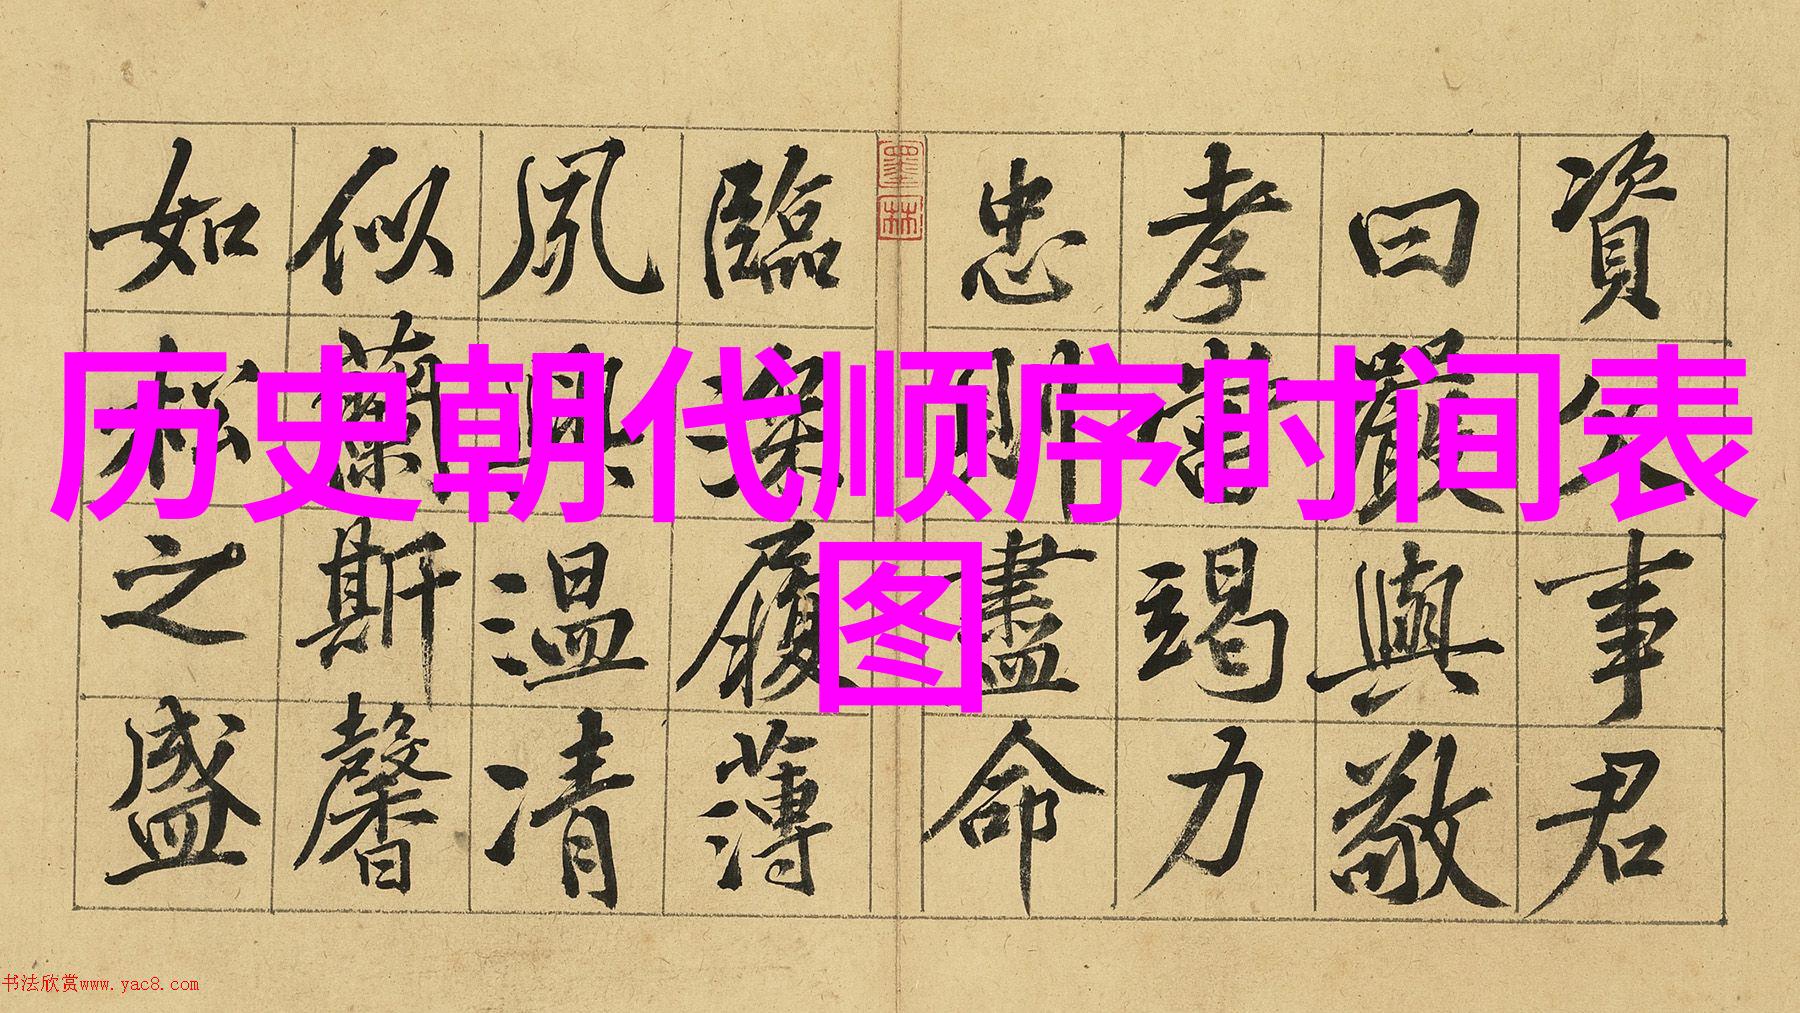 历史朝代顺序时间表
图
資父事君
曰嚴與敬
孝當竭力
忠則盡命
墨林
臨深履薄
夙興温凊
似蘭斯馨
如松之盛
书法欣赏www.yac8.com